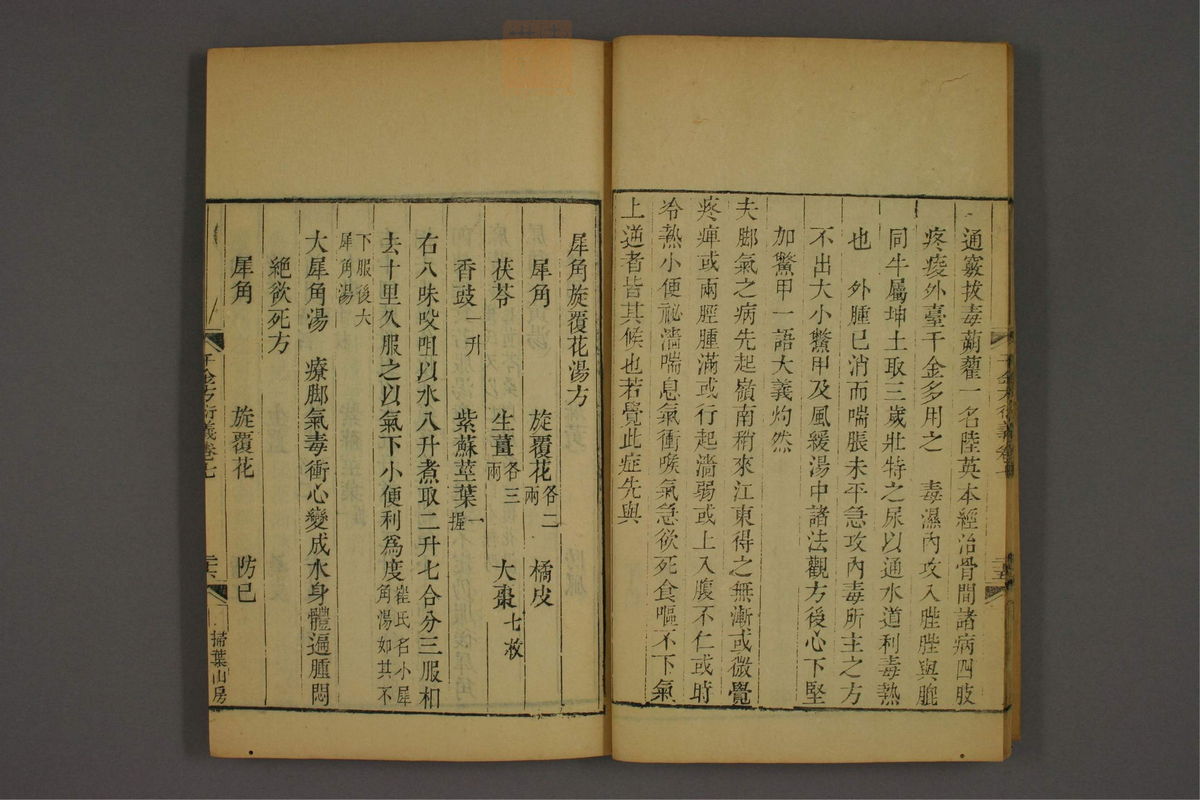 通竅拔毒蒴藋一名陸英本經治骨間諸病四肢
疼痠外臺千金多用之　毒濕內攻入脞脞與脆
同牛屬坤土取三歲壯特之尿以通水道利毒熱
也　外腫已消而喘脹未平急攻內毒所主之方
不出大小鱉甲及風緩湯中諸法觀方後心下堅
加鱉甲一語大義灼然
夫脚氣之病先起嶺南稍來江東得之無漸或微覺
疼痺或兩脛腫滿或行起濇弱或上入腹不仁或時
冷熱小便祕濇喘息氣衝喉氣急欲死食嘔不下氣
上逆者皆其候也若覺此症先與
千金方衍義卷七
二十五
犀角旋覆花湯方
犀角　旋覆花各二兩　橘皮
茯苓　生薑各三兩　大棗七枚
香豉一升　紫蘇莖葉一握
右八味㕮咀以水八升煮取二升七合分三服相
去十里久服之以氣下小便利爲度崔氏名小犀角湯如其不
下服後大犀角湯
大犀角湯　療脚氣毒衝心變成水身體遍腫悶
絕欲死方
犀角　旋覆花　防已
千金方衍義卷七
二十六
掃葉山房